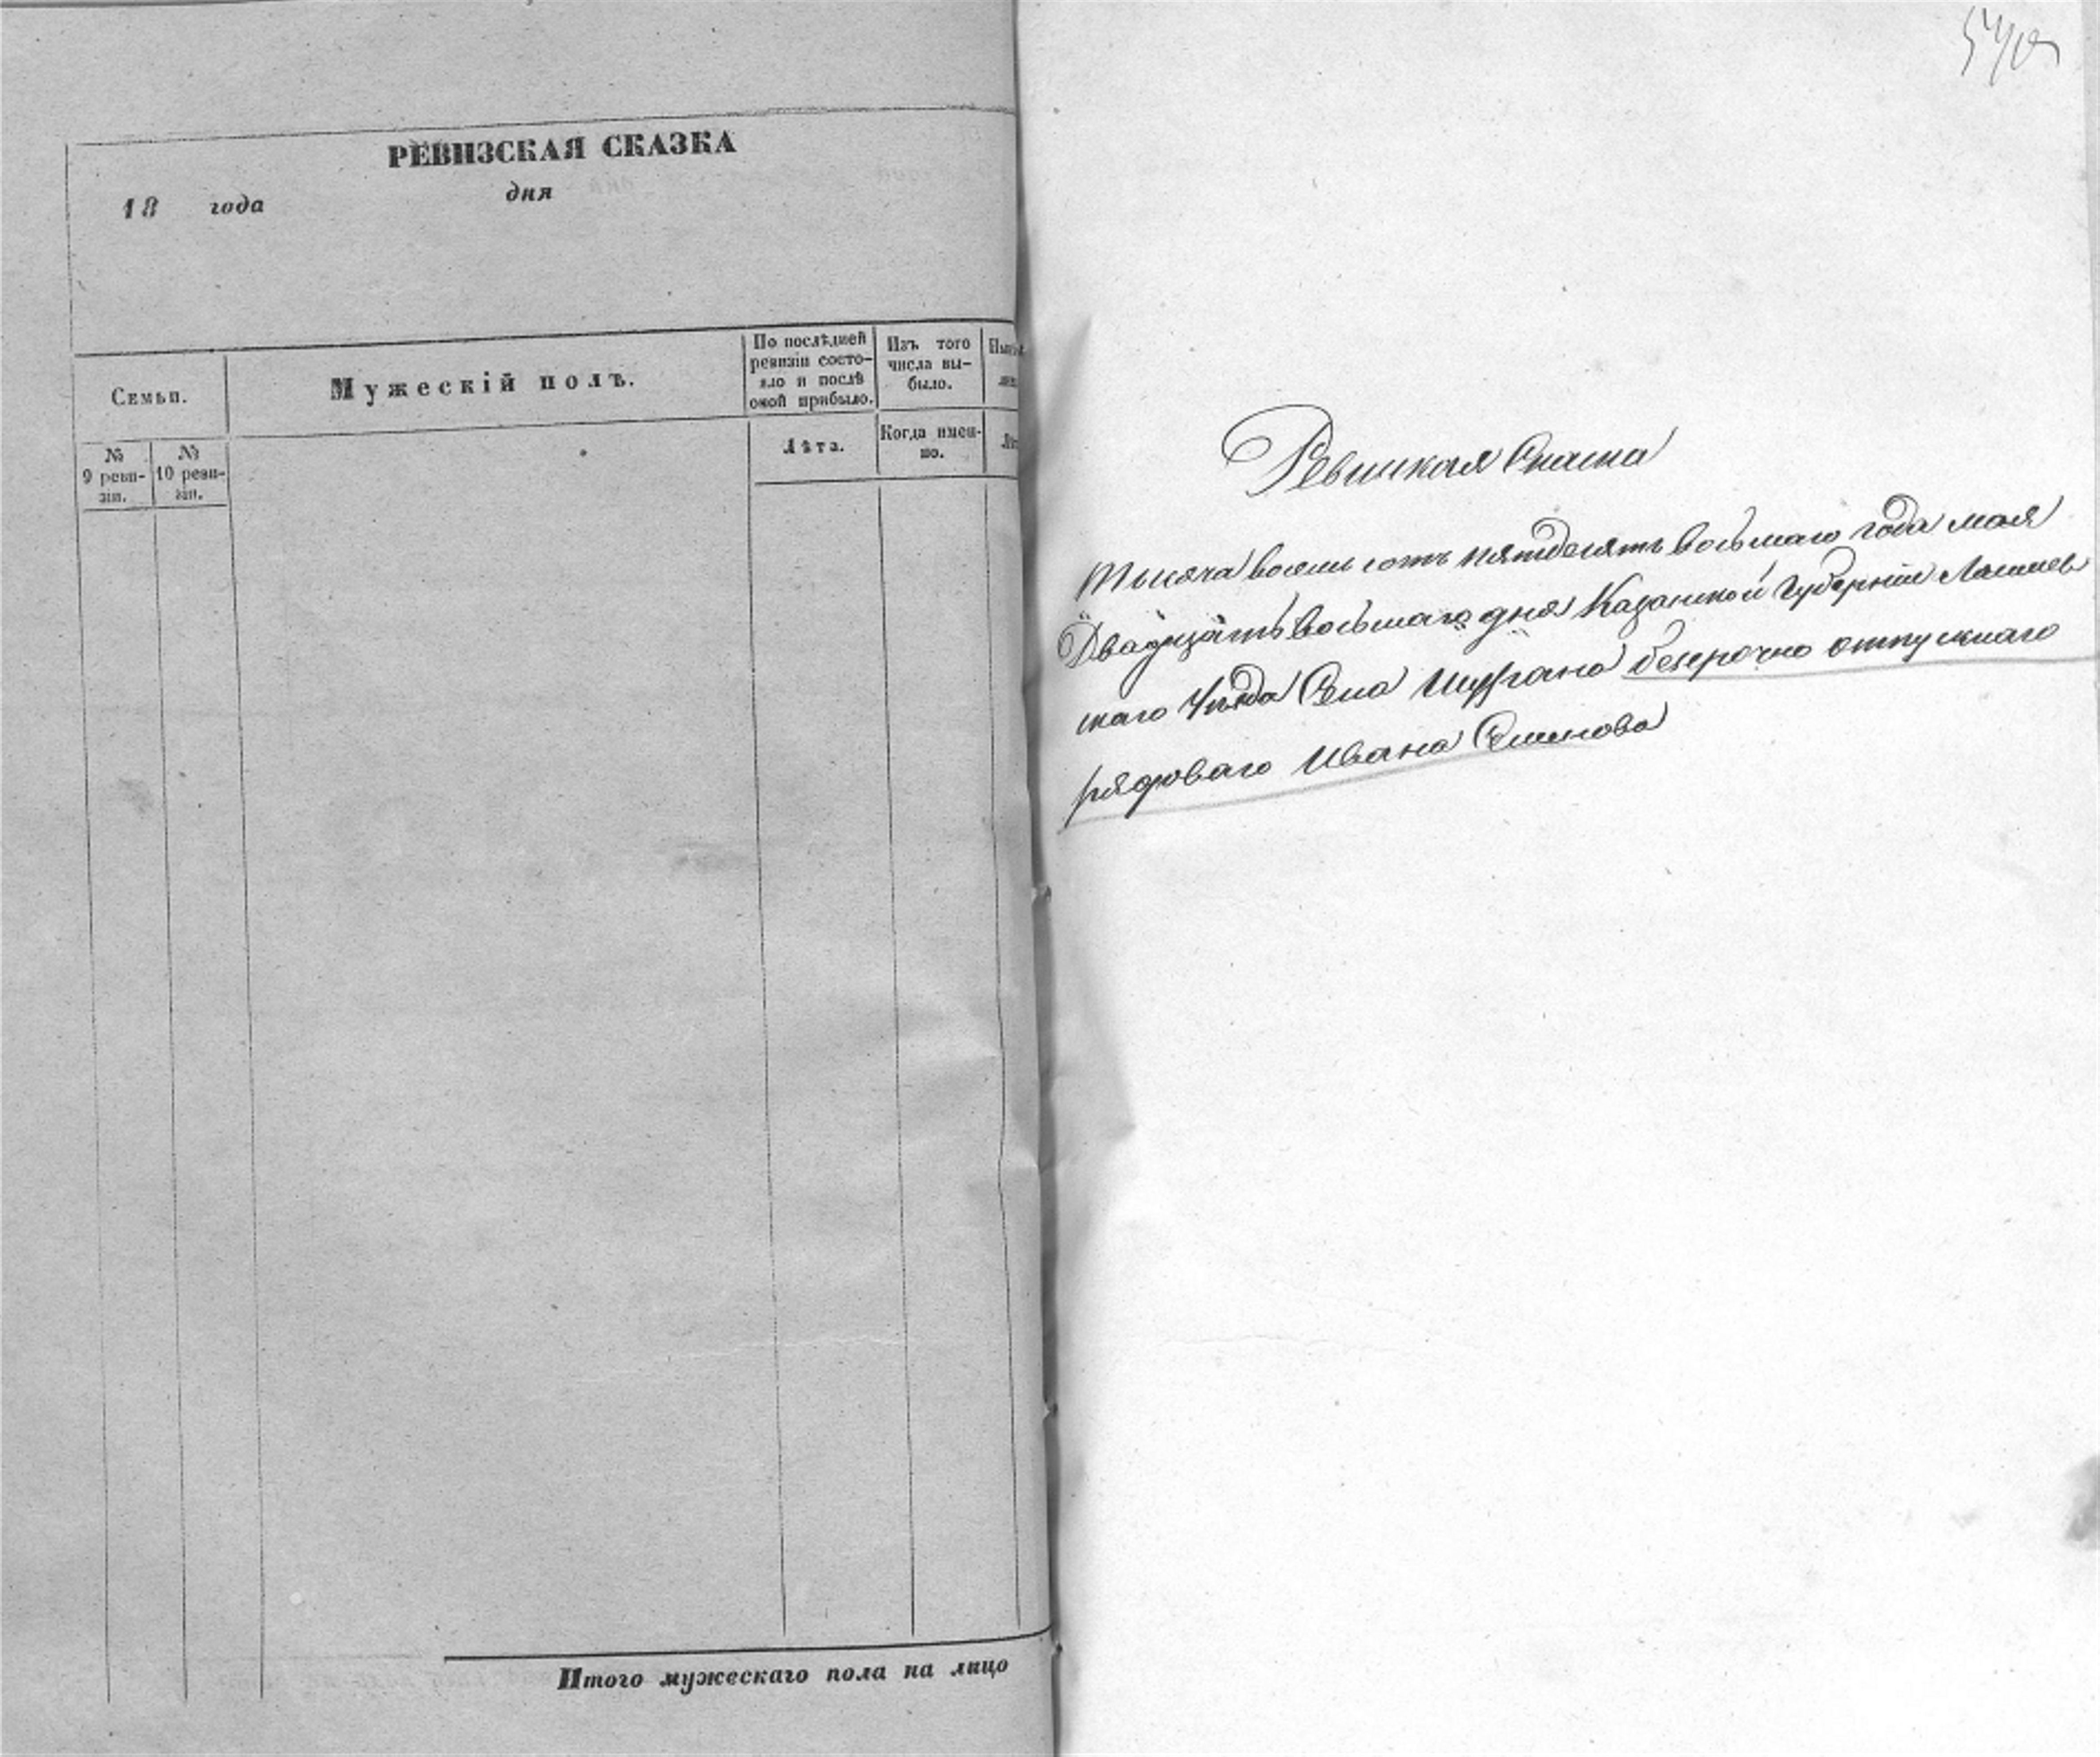 РЕВИЗСКАЯ СКАЗКА
18 года дня
Семьи.
Мужескій полъ.
По послѣдней
ревизіи состо-
яло и послѣ
оной прибыло.
Изъ того
числа вы-
было.
№
9 реви-
зіи.
№
10 реви-
зіи.
Лѣта.
Когда имен-
но.
Итого мужескаго пола на лицо
Ревиская Скаска
Тысяча восемь сотъ пятдесятъ восьмаго года мая
Двадцать восьмаго дня Казанской Губерніи Лаишев
скаго Уѣзда Села Шурана безсрочно отпускнаго
рядоваго Ивана Семенова